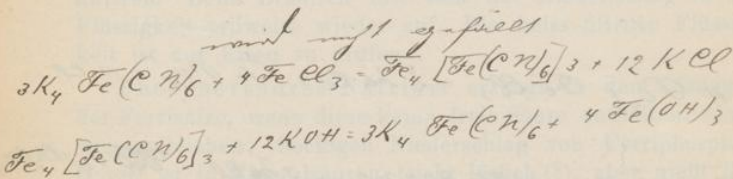 wird nicht gefällt
3K4 Fe(CN)6 + 4FeCl3 = Fe4[Fe(CN)6]3 + 12 KCl
Fe4[Fe(CN)6]3 + 12KOH = 3K4 Fe(CN)6 + 4Fe(OH)3